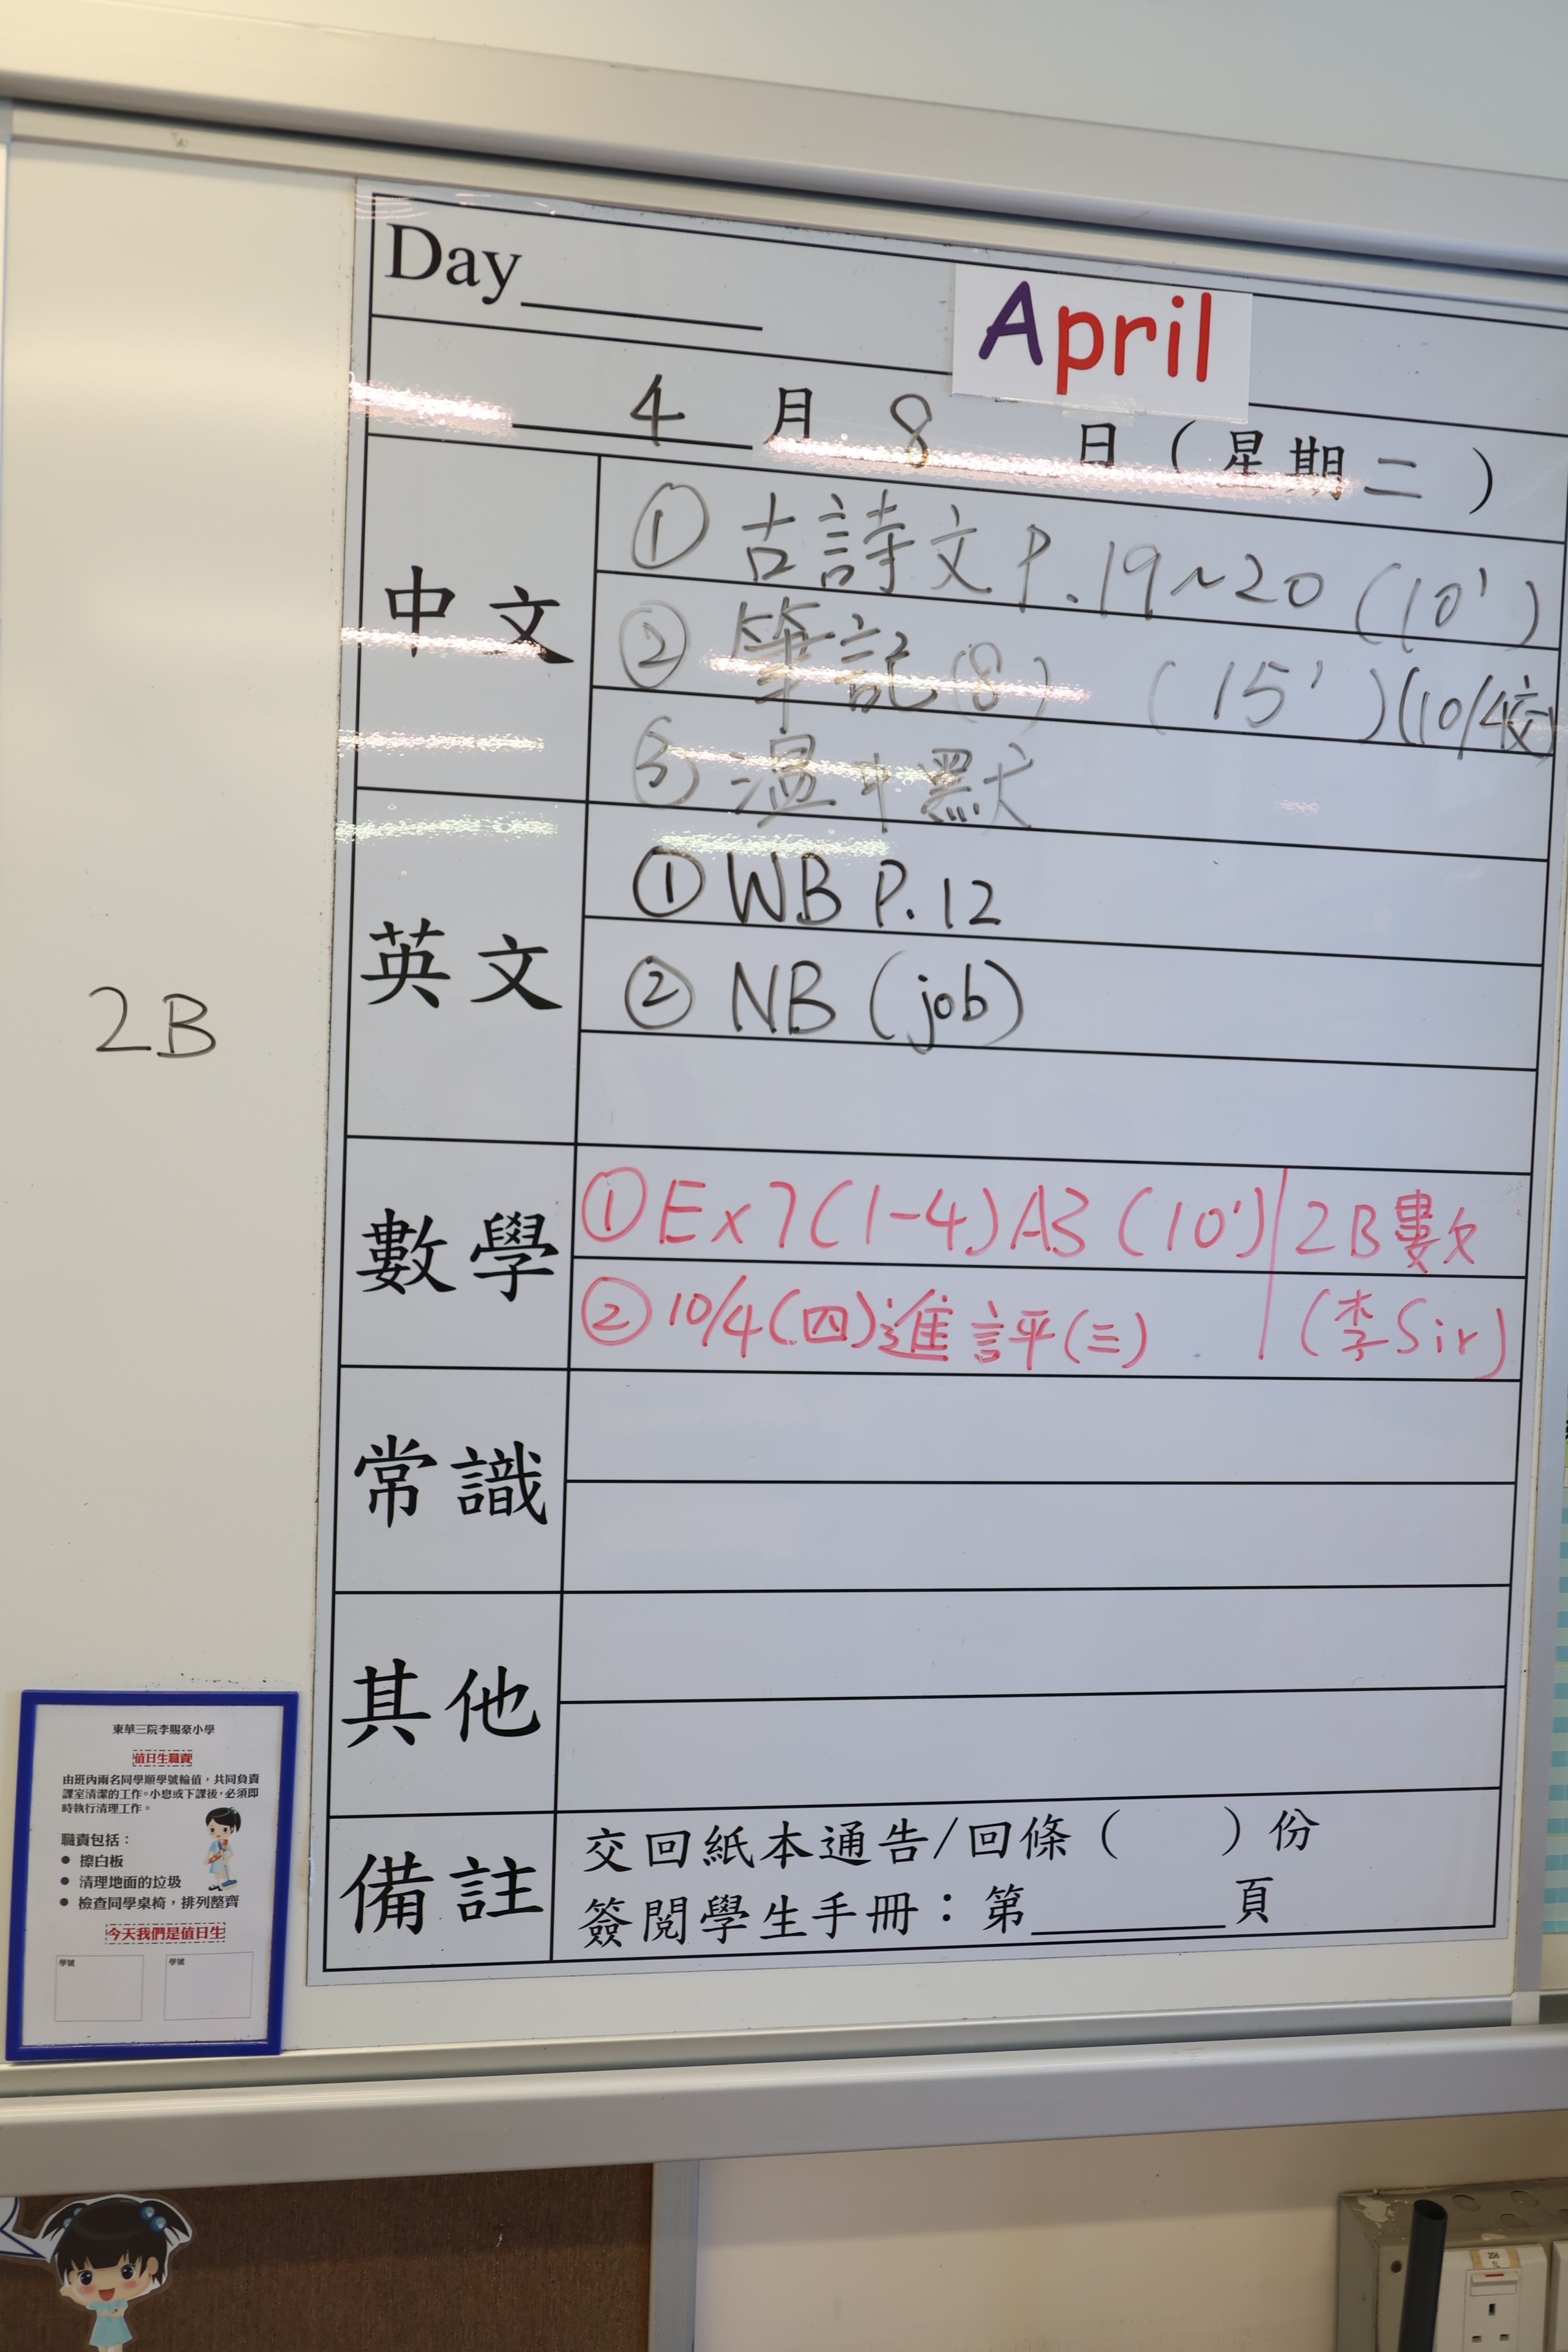 Day
April
4月8日(星期二)
中文
① 古詩文 P.19~20 (10')
② 筆記(8) (15')(10/4交)
③ 溫中默
英文
① WB P.12
② NB (job)
2B
數學
① Ex7(1-4)A3 (10') 2B數欠
② 10/4(四)進評(三) (李Sir)
常識
其他
備註
交回紙本通告/回條( )份
簽閱學生手冊:第______頁
東華三院李賜豪小學
值日生職責
由班內兩名同學順學號輪值,共同負責
課室清潔的工作。小息或下課後,必須即
時執行清理工作。
職責包括:
● 擦白板
● 清理地面的垃圾
● 檢查同學桌椅,排列整齊
今天我們是值日生
學號 學號